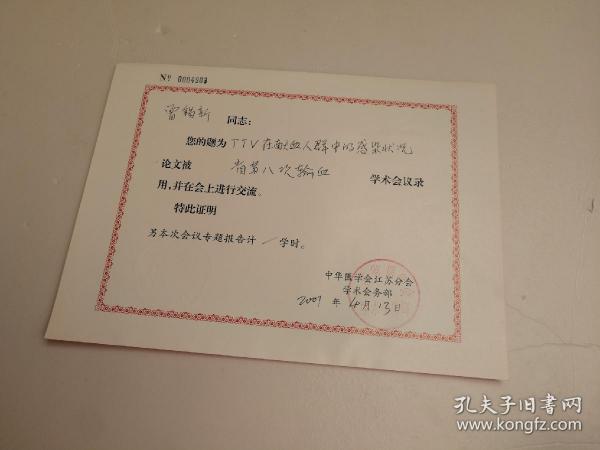 No 0004903
雷锡新 同志：
您的题为TTV在献血人群中的感染状况
论文被 省第八次输血 学术会议录
用，并在会上进行交流。
特此证明
另本次会议专题报告计 / 学时。
中华医学会江苏分会
学术会务部
2001 年 4月 13日
孔夫子旧书网
www.kongfz.com